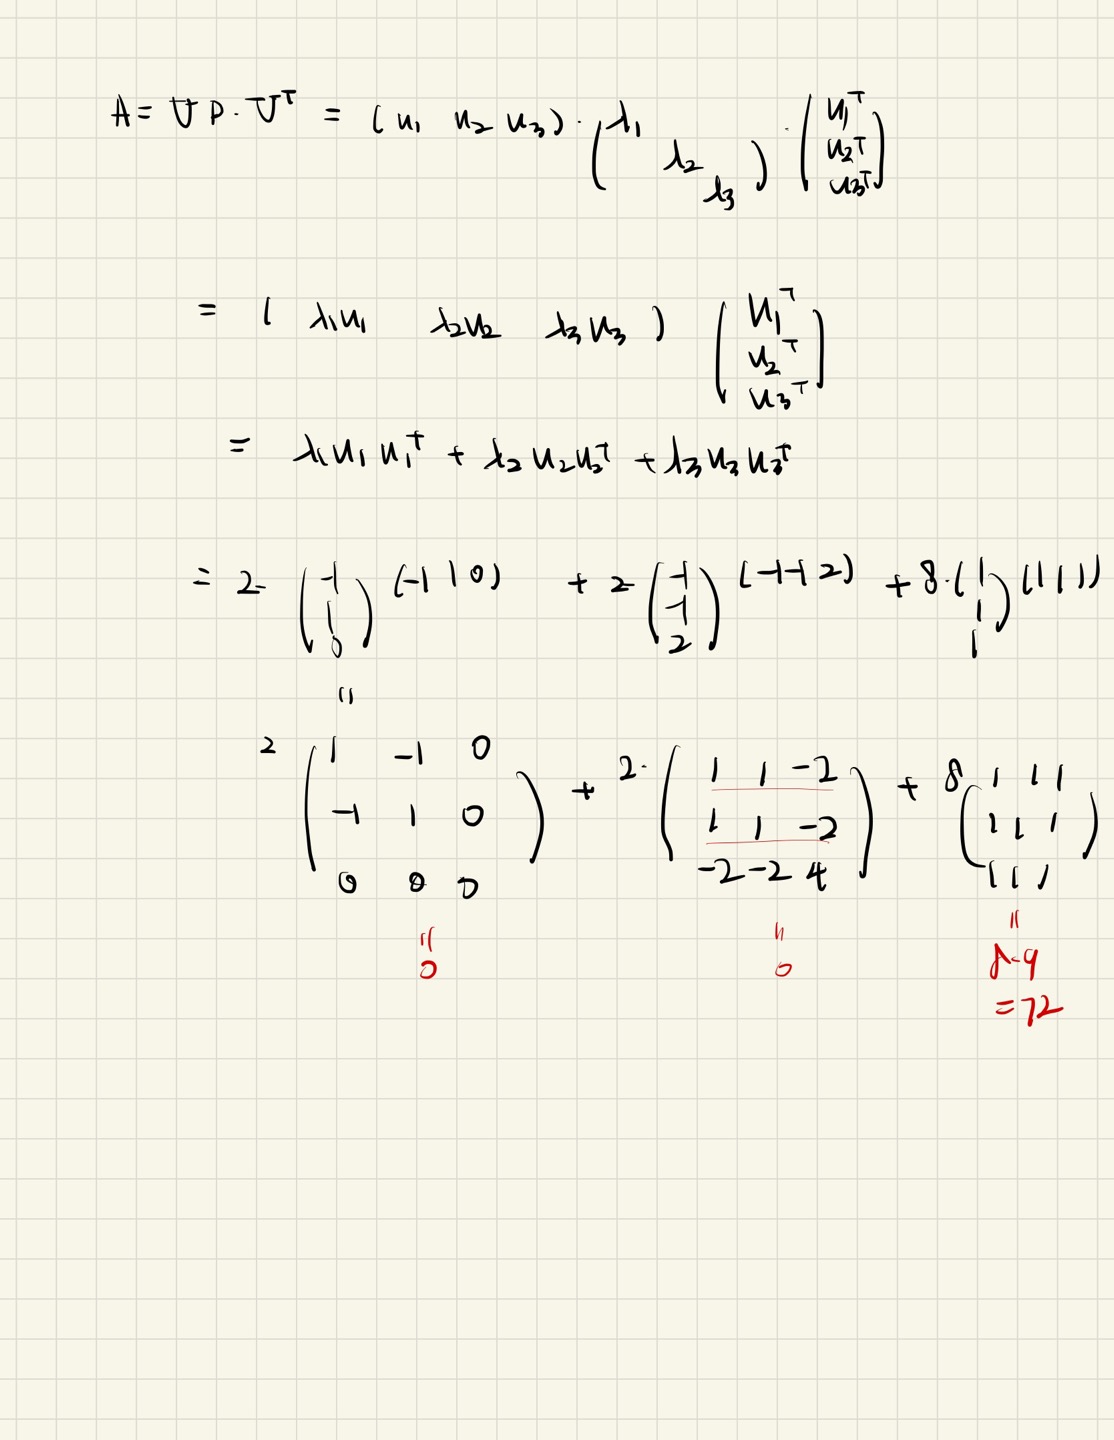 A = U D · Uᵀ = (u₁ u₂ u₃) · (λ₁ λ₂ λ₃) · (u₁ᵀ u₂ᵀ u₃ᵀ)
= ( λ₁u₁ λ₂u₂ λ₃u₃ ) (u₁ᵀ u₂ᵀ u₃ᵀ)
= λ₁u₁u₁ᵀ + λ₂u₂u₂ᵀ + λ₃u₃u₃ᵀ
= 2· (-1 1 0) (-1 1 0) + 2· (-1 -1 2) (-1 -1 2) + 8· (1 1 1) (1 1 1)
=
2 (1 -1 0 + 2· (1 1 -2 + 8 (1 1 1
-1 1 0 1 1 -2 1 1 1
0 0 0) -2 -2 4) 1 1 1)
= = =
0 0 8·9
= 72